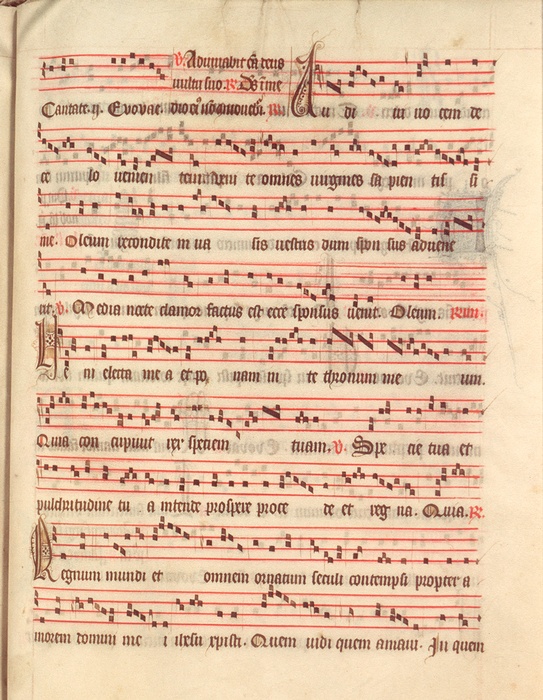 v. Adiuuabit eā deus
uultu suo. R. Ds ī me
Cantate. ij. Evovae. Au di ui uo cem de
ce lo uenien tem uenite omnes uirgines sa pien tis si
me. Oleum recondite in ua sis uestris dum spon sus aduene
rit. v. Media nocte clamor factus est ecce sponsus uenit. Oleum.
Ve ni electa me a et po nam in te thronum me um.
Quia con cupiuit rex speciem tuam. v. Spe cie tua et
pulchritudine tu a intende prospere proce de et reg na. Quia. R.
Regnum mundi et omnem ornatum seculi contempsi propter a
morem domini me i ihesu xpisti. Quem uidi quem amaui. In quem